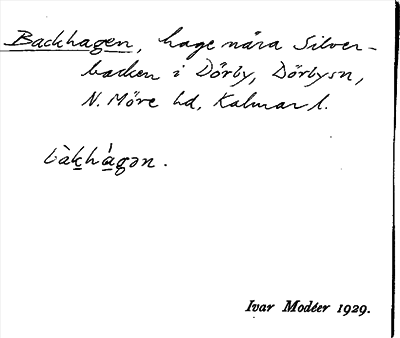 Backhagen, hage nära Silver-
backen i Dörby, Dörbysn,
N. Möre hd, Kalmar l.
bàkhágən.
Ivar Modéer 1929.